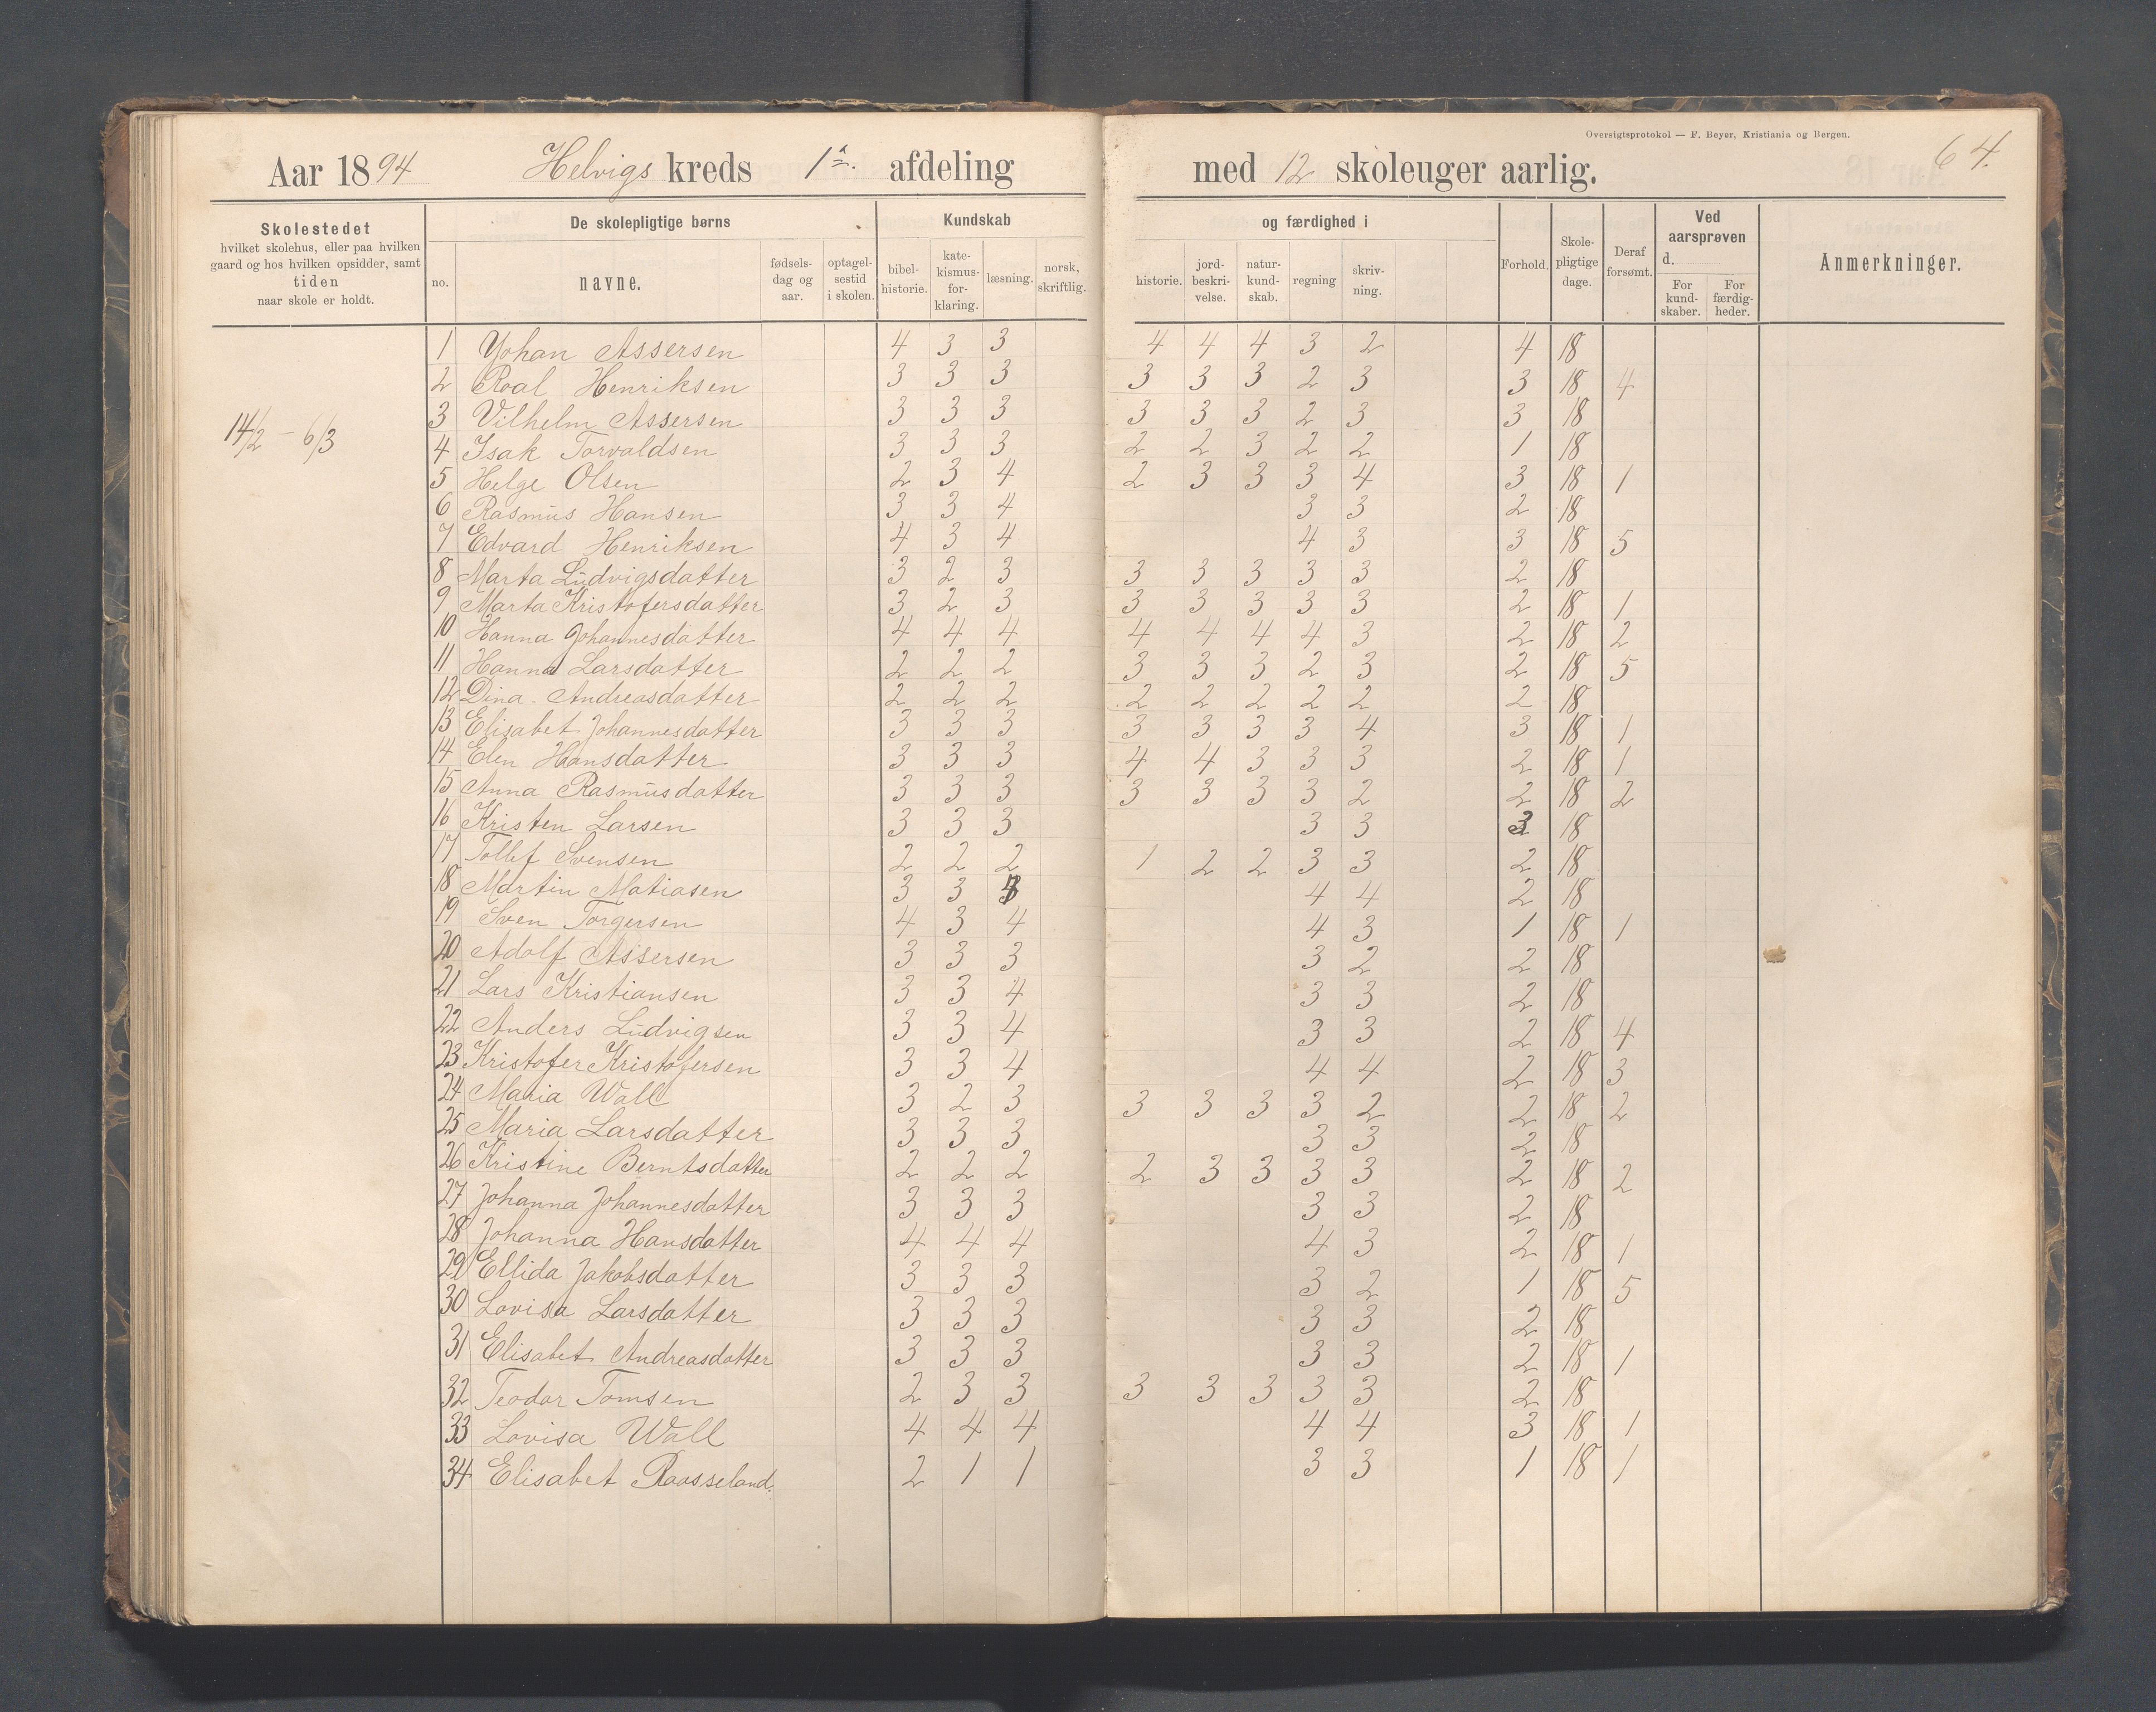 Oversigtsprotokol — F. Beyer, Kristiania og Bergen.
64.
Aar 1894 Helvigs kreds 1ste afdeling med 12 skoleuger aarlig.
Skolestedet hvilket skolehus, eller paa hvilken gaard og hos hvilken opsidder, samt tiden naar skole er holdt.
De skolepligtige børns
no. navne. fødsels-dag og aar. optagel-sestid i skolen.
Kundskab og færdighed i
bibel-historie. kate-kismus-for-klaring. læsning. norsk, skriftlig. historie. jord-beskri-velse. natur-kund-skab. regning skriv-ning.
Forhold. Skole-pligtige dage. Deraf forsømt.
Ved aarsprøven d.
For kund-skaber. For færdig-heder.
Anmerkninger.
14/2 – 6/3
1 Johan Assersen 4 3 3 4 4 4 3 2 4 18
2 Roal Henriksen 3 3 3 3 3 3 2 3 3 18 4
3 Vilhelm Assersen 3 3 3 3 3 3 2 3 3 18
4 Isak Torvaldsen 3 3 3 2 2 3 2 2 1 18
5 Helge Olsen 2 3 4 2 3 3 3 4 3 18 1
6 Rasmus Hansen 3 3 4 3 3 2 18
7 Edvard Henriksen 4 3 4 4 3 3 18 5
8 Marta Ludvigsdatter 3 2 3 3 3 3 3 3 2 18
9 Marta Kristofersdatter 3 2 3 3 3 3 3 3 2 18 1
10 Hanna Johannesdatter 4 4 4 4 4 4 4 3 2 18 2
11 Hanna Larsdatter 2 2 2 3 3 3 2 3 2 18 5
12 Dina Andreasdatter 2 2 2 2 2 2 2 2 2 18
13 Elisabet Johannesdatter 3 3 3 3 3 3 3 4 3 18 1
14 Elen Hansdatter 3 3 3 4 4 3 3 3 2 18 1
15 Anna Rasmusdatter 3 3 3 3 3 3 3 2 2 18 2
16 Kristen Larsen 3 3 3 3 3 3 18
17 Tollef Svensen 2 2 2 1 2 2 3 3 2 18
18 Martin Matiasen 3 3 4 4 2 18
19 Sven Torgersen 4 3 4 4 3 1 18 1
20 Adolf Assersen 3 3 3 3 2 2 18
21 Lars Kristiansen 3 3 4 3 3 2 18
22 Anders Ludvigsen 3 3 4 3 3 2 18 4
23 Kristofer Kristofersen 3 3 4 4 4 2 18 3
24 Maria Wall 3 2 3 3 3 3 3 2 2 18 2
25 Maria Larsdatter 3 3 3 3 3 2 18
26 Kristine Berntsdatter 2 2 2 2 3 3 3 3 2 18 2
27 Johanna Johannesdatter 3 3 3 3 3 2 18
28 Johanna Hansdatter 4 4 4 4 3 2 18 1
29 Ellida Jakobsdatter 3 3 3 3 2 1 18 5
30 Lovisa Larsdatter 3 3 3 3 3 2 18
31 Elisabet Andreasdatter 3 3 3 3 3 2 18 1
32 Teodor Tomsen 2 3 3 3 3 3 3 3 2 18
33 Lovisa Wall 4 4 4 4 4 3 18 1
34 Elisabet Roosseland. 2 1 1 3 3 1 18 1